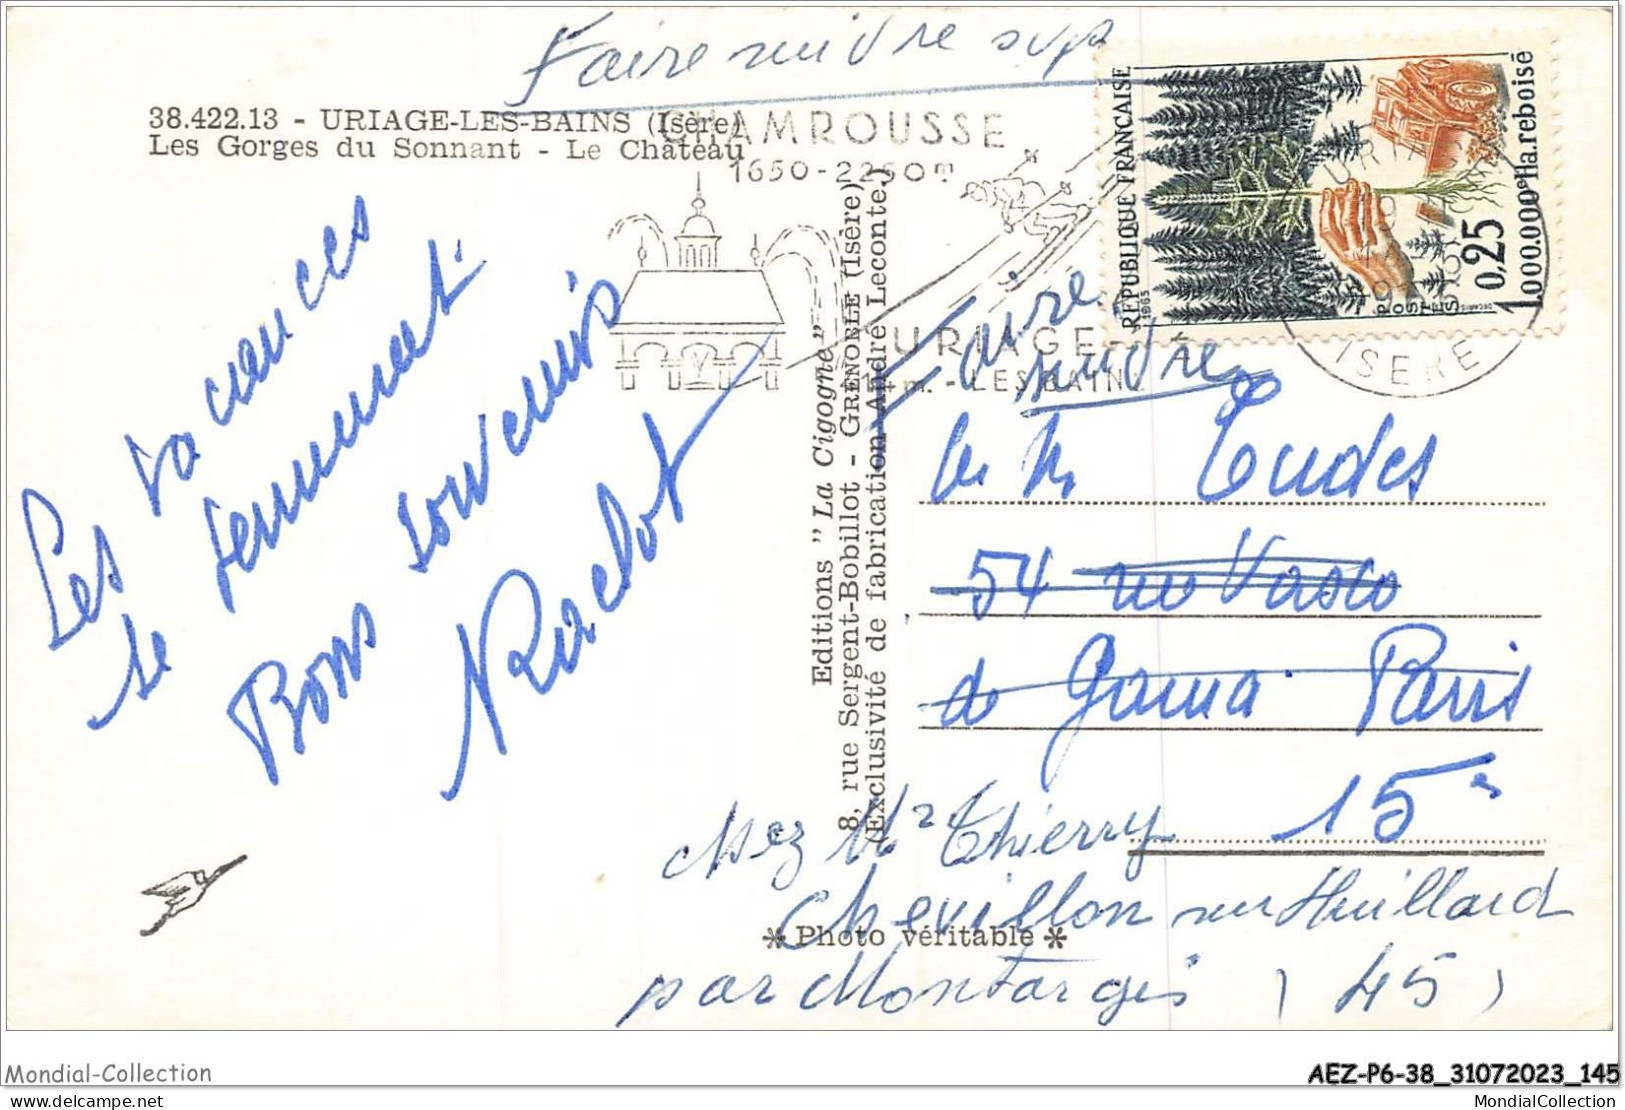 Faire suivre svp
38.422.13 - URIAGE-LES-BAINS (Isère)
Les Gorges du Sonnant - Le Château
CHAMROUSSE
1650-2250m
URIAGE-
414 m. - LES BAINS
REPUBLIQUE FRANCAISE
1965
0,25
POSTES
1.000.000ha.reboisé
URIAGE
ISERE
Les vacances
se terminent.
Bons souvenirs
Rachot
Editions "La Cigogne"
8, rue Sergent-Bobillot - GRENOBLE (Isère)
(Exclusivité de fabrication André Leconte)
Faire
suivre
Tudes
54 rue Vasco
de Gama Paris
15e
chez Mr Thierry
Chevillon sur Huillard
par Montargis (45)
* Photo véritable *
Mondial-Collection
AEZ-P6-38_31072023_145
delcampe.net
MondialCollection